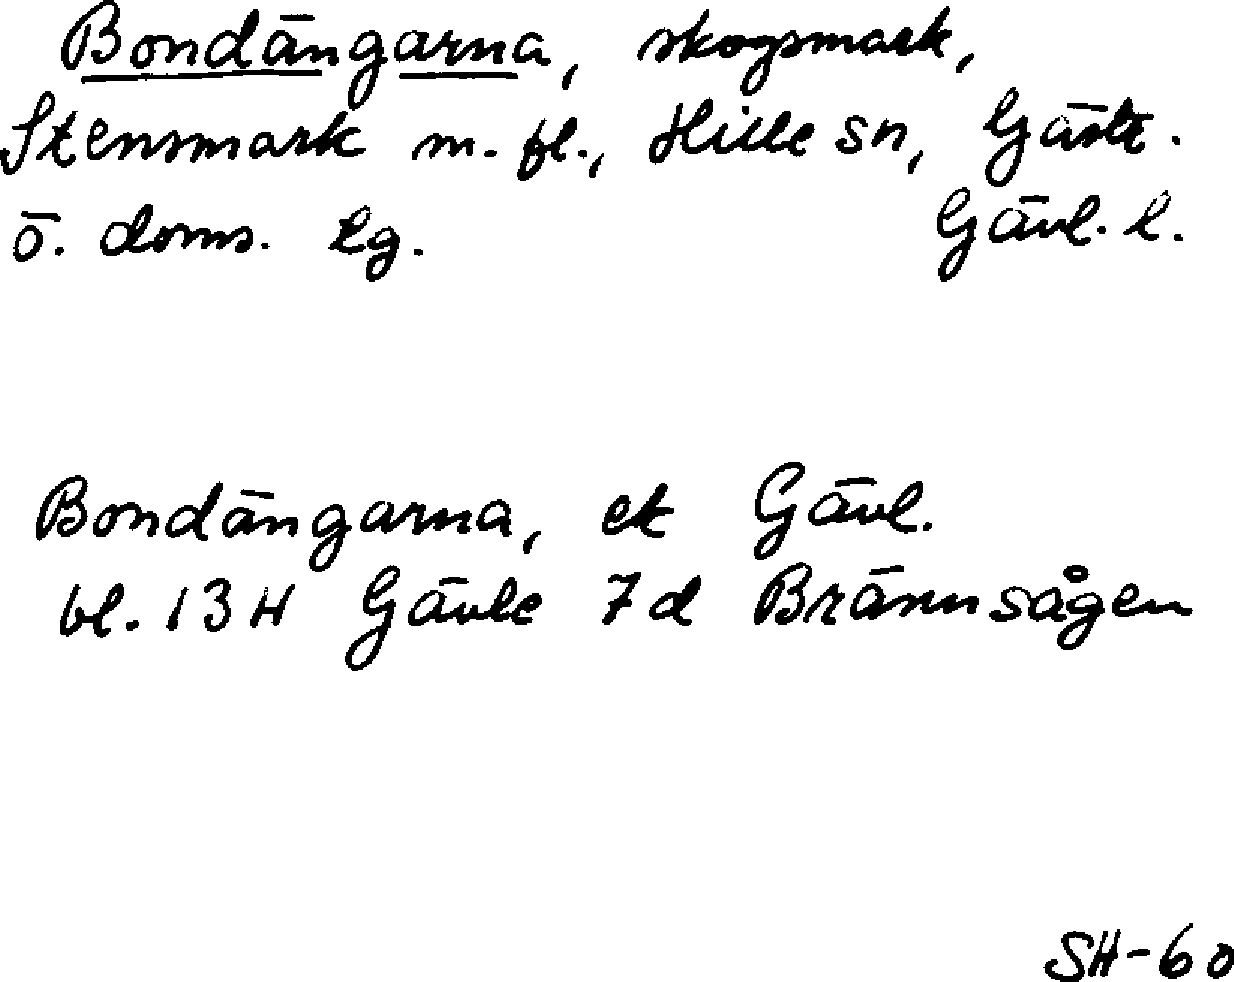 Bondängarna, skogsmark,
Stensmark m. fl., Hille sn, Gästr.
ö. doms. tg. Gävl. l.
Bondängarna, ek Gävl.
bl. 13 H Gävle 7d Brännsågen
SH-60